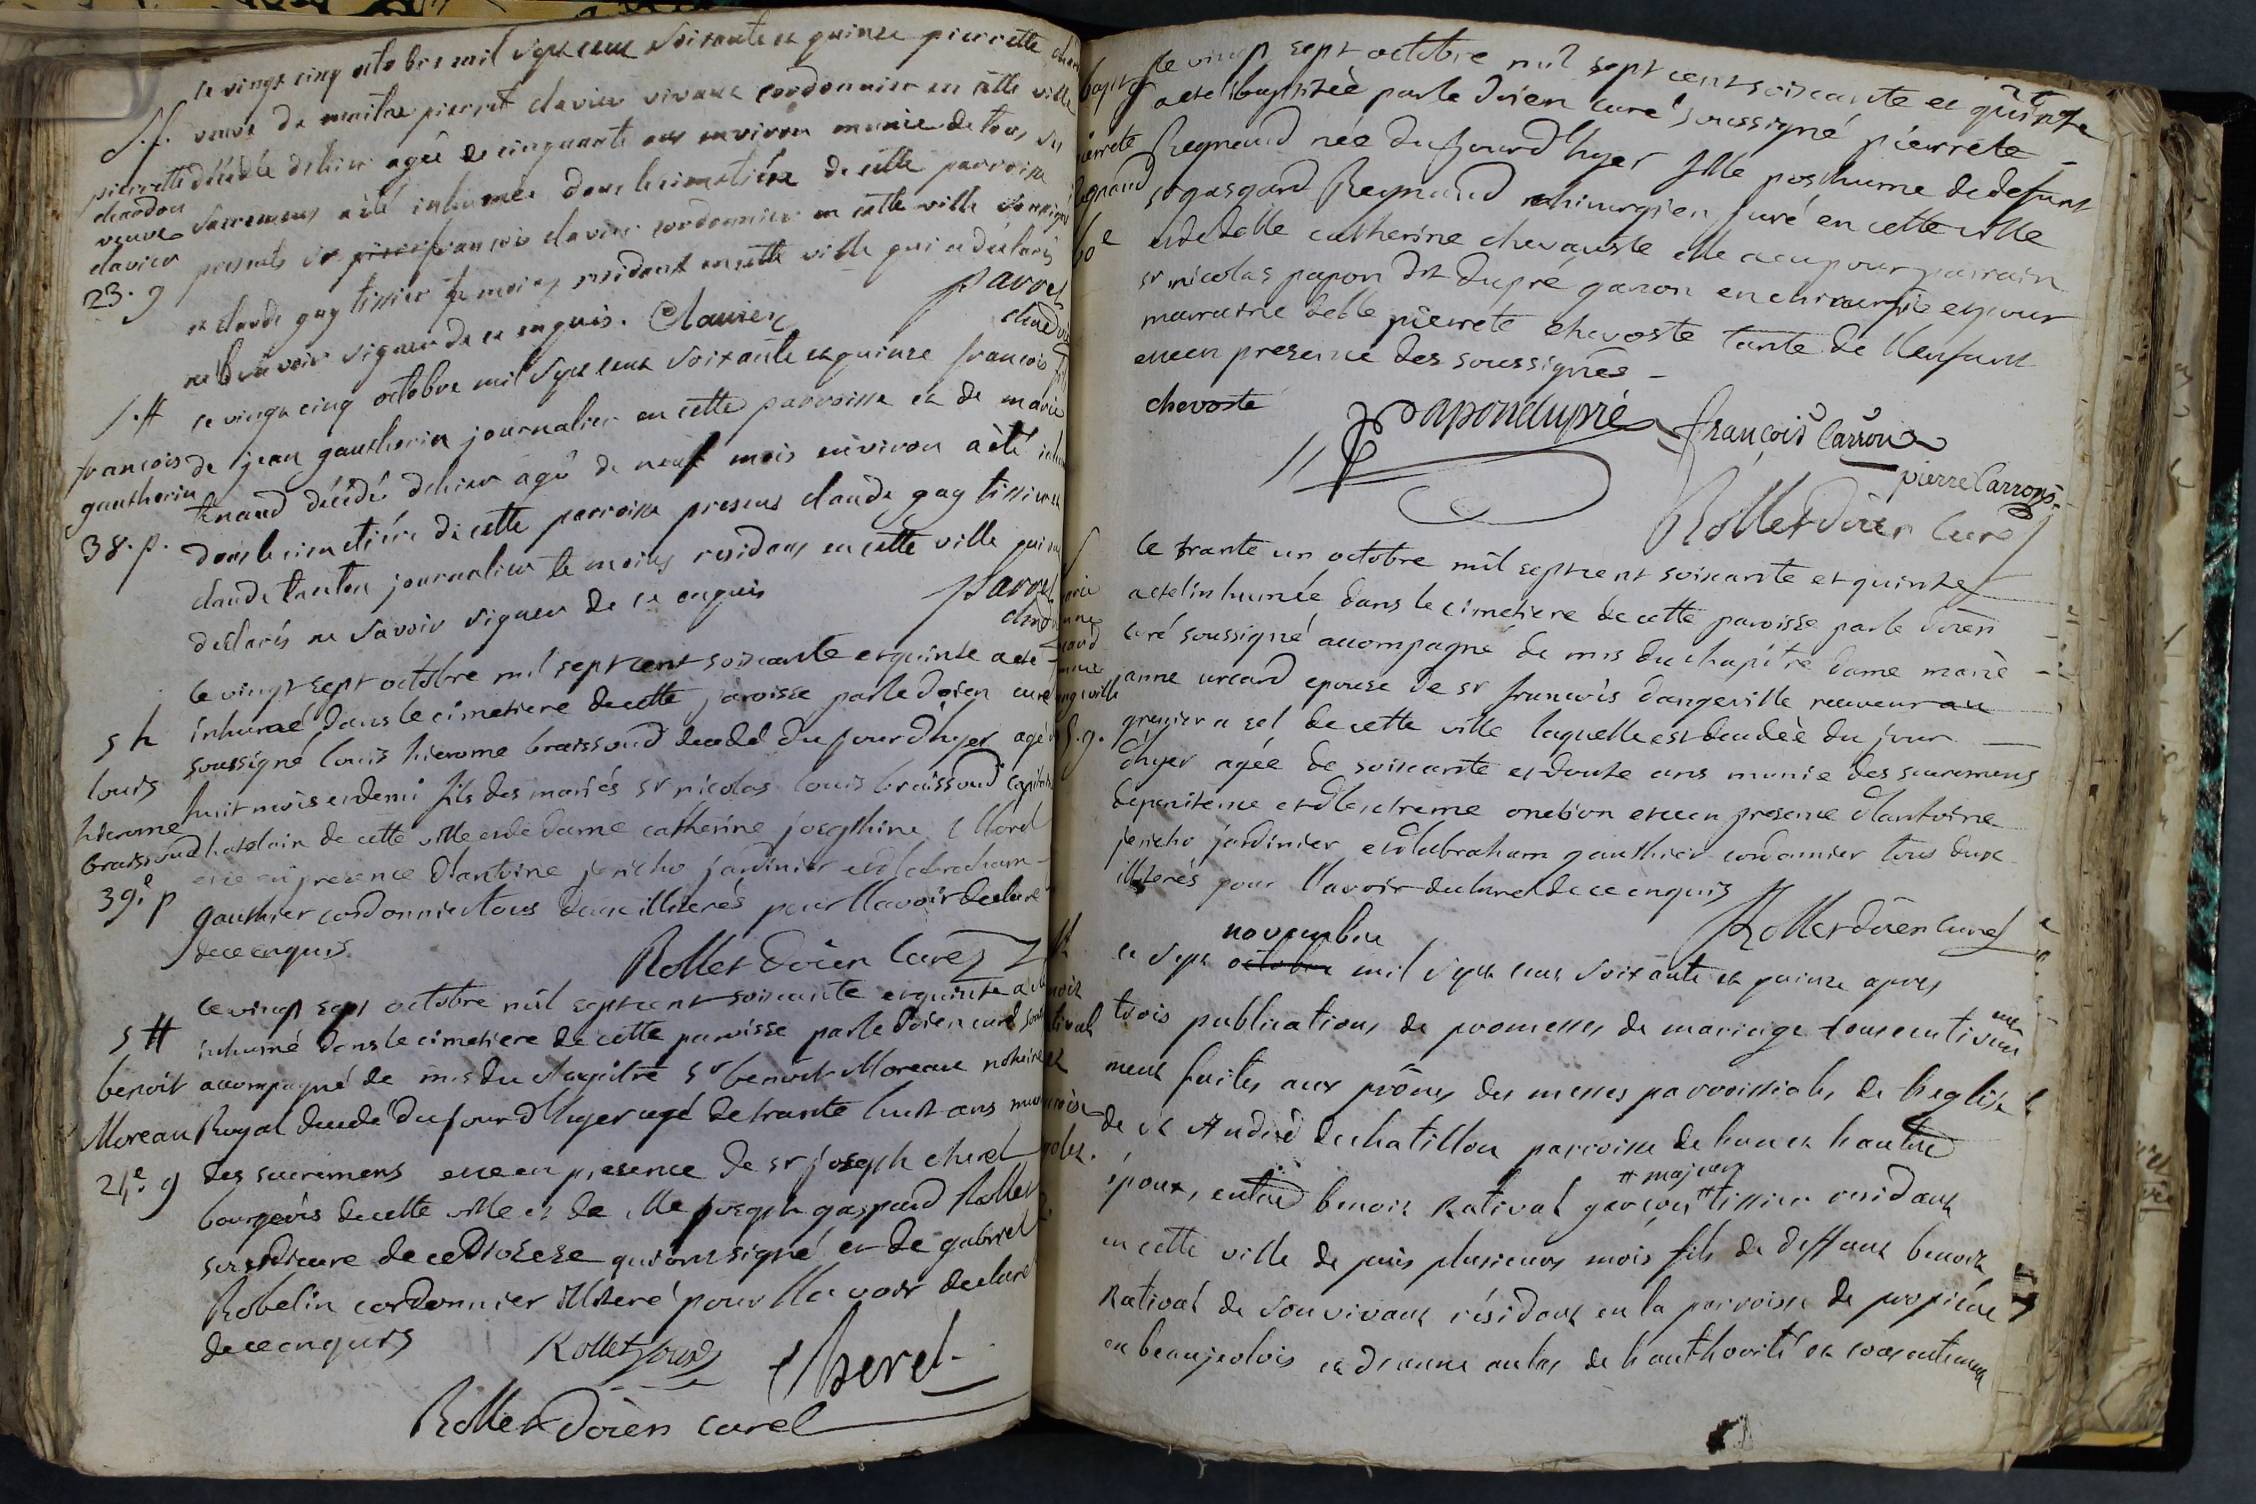 le vingt cinq octobre mil sept cent soixante et quinze pierrette chardon
S.f. veuve de maitre pierre clavier vivant cordonnier en cette ville
pierrette décédée d'hier agée de cinquante ans environ munie de tous ses
chardon
veuve sacremens a été inhumée dans le cimetiére de cette parroisse
clavier presents sr françois clavier cordonnier en cette ville soussigné
23. g et claude guy tissier témoins residant en cette ville qui a déclaré
ne savoir signer de ce enquis. Clavier
S.H le vingt cinq octobre mil sept cent soixante et quinze francois fils
francois de jean gautherin journalier en cette parroisse et de marie
gautherin tenaud décédé d'hier agé de neuf mois environ a été
38. p. dans le cimetiére de cette parroisse presens claude guy tissier et
claude journalier témoins residans en cette ville qui ont
déclarés ne savoir signer de ce enquis
le vingt sept octobre mil sept cent soixante et quinze a eté
s h inhumé dans le cimetiere de cette paroisse par le doien curé
louis soussigné louis hierome braissoud decedé du jour d'hyer agé de
hierome huit mois et demi fils des mariés sr nicolas louis braissoud capitaine
braissoud chatelain de cette ville et de dame catherine josephine
39.e p et ce en presence d'antoine jericho jardinier et d'abraham
gauthier cordonnier tous deux illiterés pour l'avoir declaré
de ce enquis.
Rollet doien curé
le vingt sept octobre mil sept cent soixante et quinze a eté
s H inhumé dans le cimetiere de cette paroisse par le doien curé
benoit accompagné de mrs du chapitre sr benoit Moreau notaire
Moreau Royal decedé du jour d'hyer agé de trante huit ans muni
21.e g des sacremens et ce en presence de sr joseph cherel
bourgeois de cette ville et de Me joseph gaspard Rollet
sousdiacre de ce diozese qui ont signé et de gabriel
Robelin cordonnier illiteré pour l'avoir declaré
de ce enquis
Rollet Cherel
Rollet doien curé
bapt g le vingt sept octobre mil sept cent soixante et quinze
a eté baptizée par le doien curé soussigné pierrete
pierrete Reynaud née du jourd'hyer fille posthume de defunt
Reynaud sr gaspard Reynaud chirurgien juré en cette ville
60e et de delle catherine chevauste elle a eu pour parrain
sr nicolas papon dit dupré garçon en chirurgie et pour
marraine delle pierrete chevoste tante de l'enfant
et ce en presence des soussignés
chevoste Papondupré françois Carron
pierre Carron
Rollet doien curé
le trante un octobre mil sept cent soixante et quinze
a eté inhumée dans le cimetiere de cette paroisse par le doien
curé soussigné accompagné de mrs du chapitre dame marie
anne urcard epouse de sr francois dangeville receveur au
grenier a sel de cette ville laquelle est decedée du jour
d'hyer agée de soixante et douze ans munie des sacremens
de penitence et d'extreme onction et ce en presence d'antoine
jericho jardinier et d'abraham gauthier cordonnier tous deux
illiterés pour l'avoir declaré de ce enquis
Rollet doien curé
novembre
le sept octobre mil sept cent soixante et quinze apres
trois publications de promesses de mariage consecutive
ment faites aux prônes des messes parroissiales de l'eglise
de st André de chatillon parroisse de l'un et l'autre
époux, entre benoit Rativat garçon tissier residant
# majeur
en cette ville depuis plusieurs mois fils de deffunt benoit
Rativat de son vivant résidant en la parroisse de propiére
en beaujeolois et d'anne aulas de l'authorité et consentement